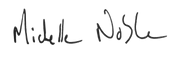 Michelle Noble